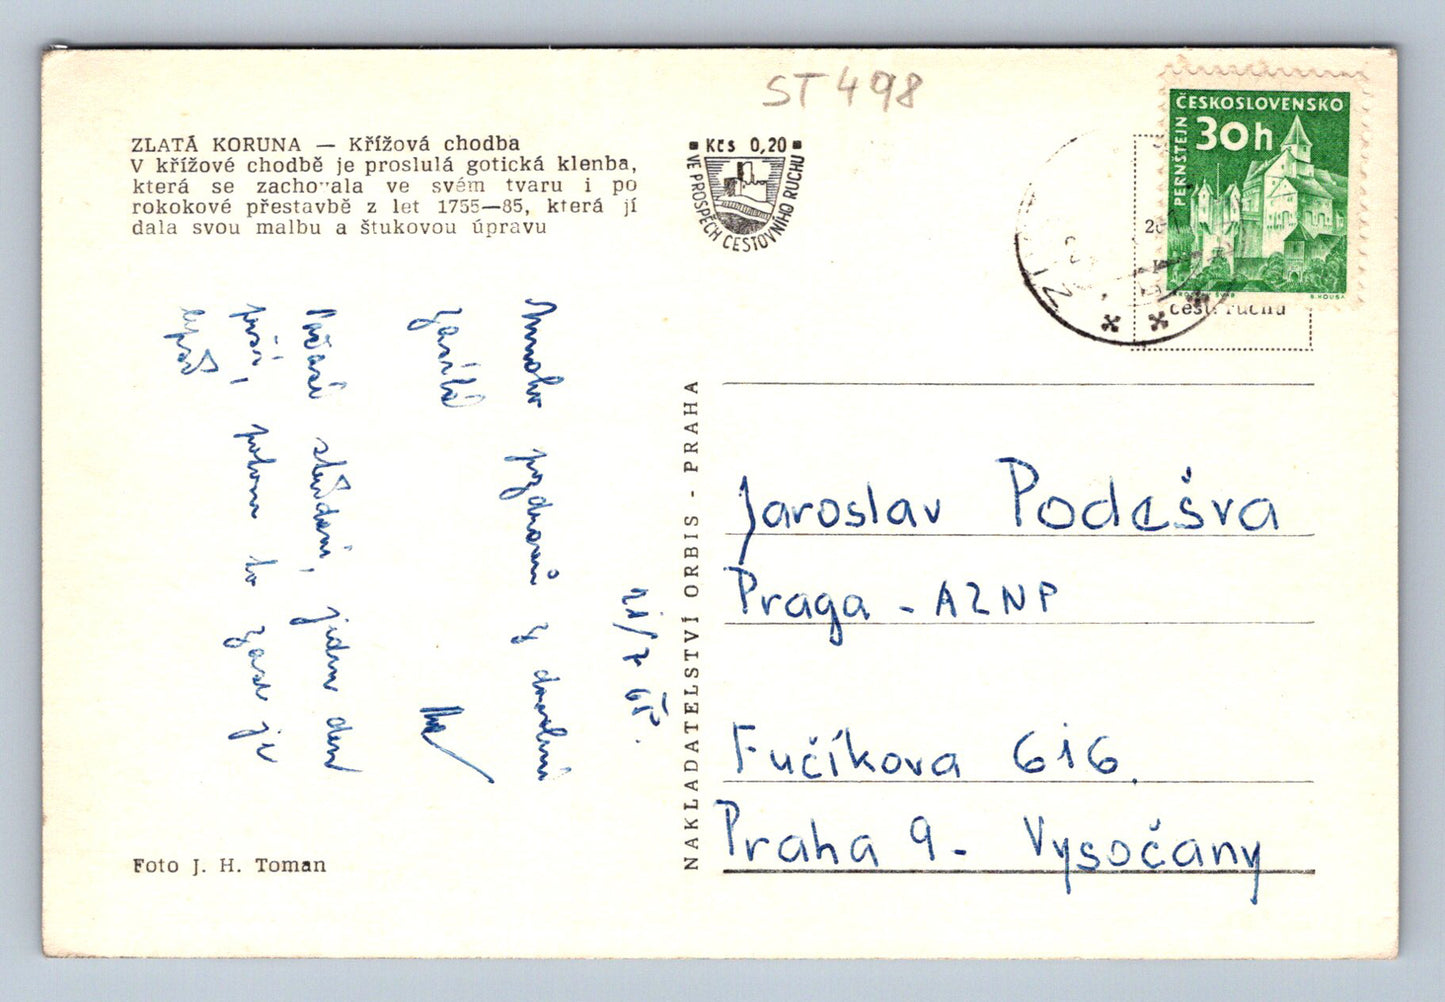 ST 498
ZLATÁ KORUNA — Křížová chodba
V křížové chodbě je proslulá gotická klenba,
která se zachovala ve svém tvaru i po
rokokové přestavbě z let 1755—85, která jí
dala svou malbu a štukovou úpravu
Kčs 0,20
VE PROSPĚCH CESTOVNÍHO RUCHU
ČESKOSLOVENSKO
30h
PERNŠTEJN
JAROSLAV ŠVÁB
B. HOUSA
cest. ruchu
21/7 65.
Mnoho pozdravů z dovolené
zasílá
Počasí studené, jeden den
prší, potom to zase je
lepší
NAKLADATELSTVÍ ORBIS - PRAHA
Jaroslav Podešva
Praga - AZNP
Fučíkova 616.
Praha 9 - Vysočany
Foto J. H. Toman